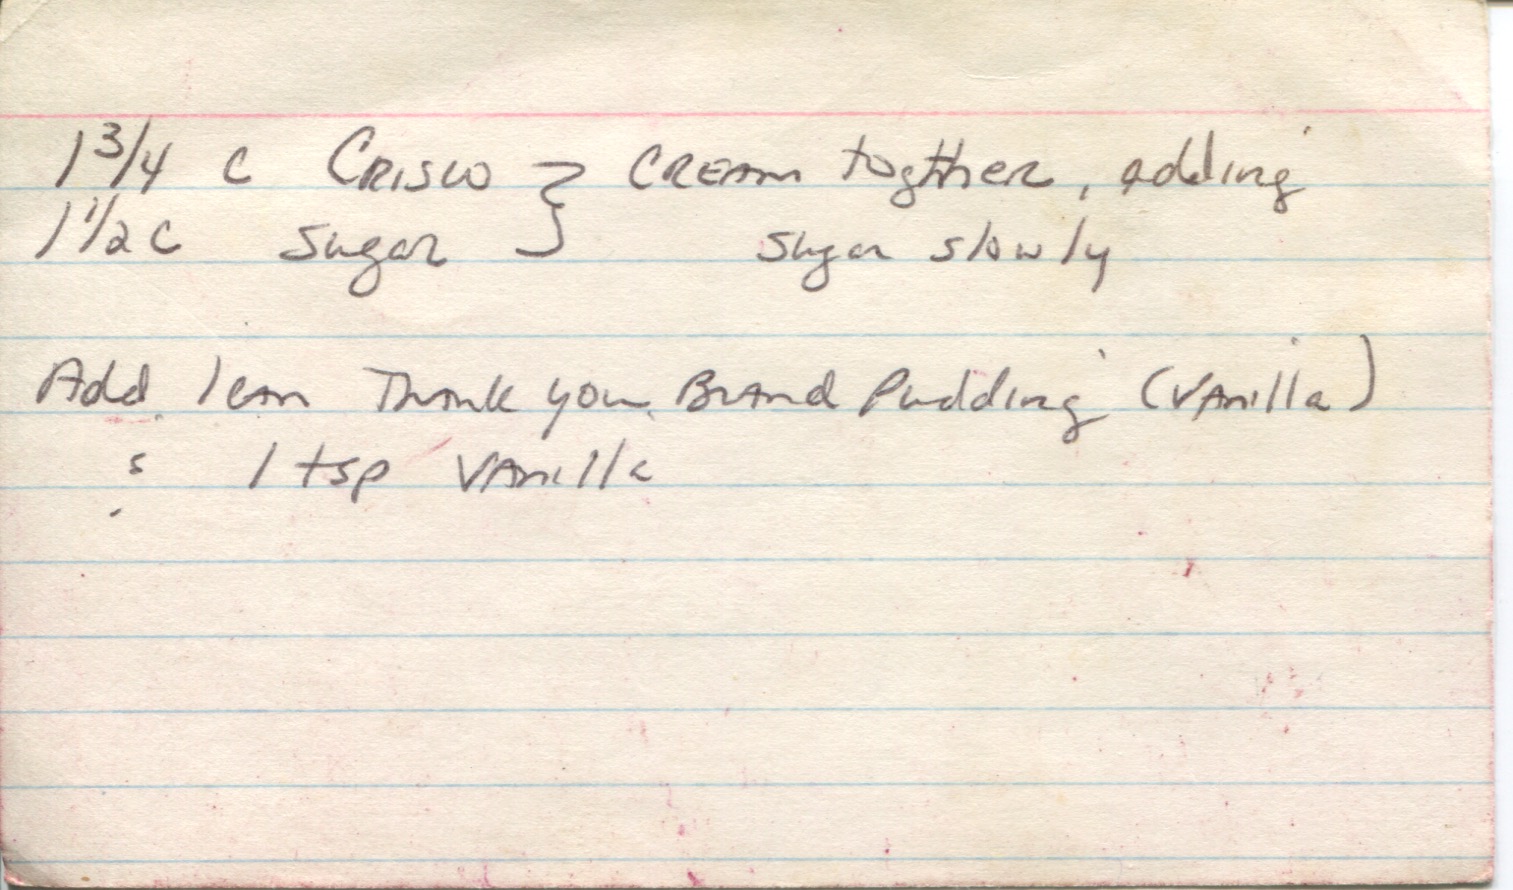 1 3/4 c Crisco } Cream together, adding
1 1/2 c Sugar } Sugar slowly
Add 1 can Thank you Brand Pudding (Vanilla)
1 tsp Vanilla